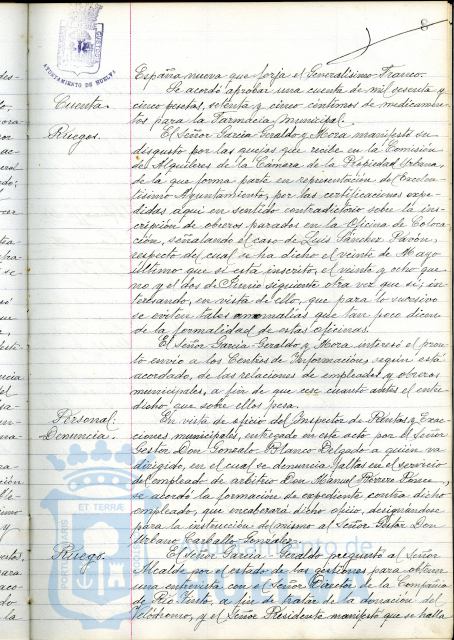 8
AYUNTAMIENTO DE HUELVA
España nueva que forja el Generalísimo Franco.
Cuenta.
Se acordó aprobar una cuenta de mil sesenta y
cinco pesetas, setenta y cinco céntimos de medicamen-
tos para la Farmacia Municipal.
Ruegos.
El Señor García Geraldo y Mora manifestó su
disgusto por las quejas que recibe en la Comisión
de Alquileres de la Cámara de la Propiedad Urbana,
de la que forma parte en representación del Excelen-
tísimo Ayuntamiento, por las certificaciones expe-
didas aquí en sentido contradictorio sobre la ins-
cripción de obreros parados en la Oficina de Coloca-
ción, señalando el caso de Luis Sánchez Pavón,
respecto del cual se ha dicho el veinte de Mayo
último que sí está inscrito, el veinte y ocho que
no y el dos de Junio siguiente otra vez que sí; in-
teresando, en vista de ello, que para lo sucesivo
se eviten tales anomalías que tan poco dicen
de la formalidad de estas oficinas.
El Señor García Geraldo y Mora interesó el pron-
to envío a los Centros de Información, según está
acordado, de las relaciones de empleados y obreros
municipales, a fin de que cese cuanto antes el entre-
dicho que sobre ellos pesa.
Personal.
Denuncia.
En vista de oficio del Inspector de Rentas y Exac-
ciones municipales, entregado en este acto por el Señor
Gestor Don Gonzalo Blanco Delgado a quien va
dirigido, en el cual se denuncia faltas en el servicio
del empleado de arbitrio Don Manuel Borrero Ponce,
se acordó la formación de expediente contra dicho
empleado, que encabezará dicho oficio, designándose
para la instrucción del mismo al Señor Gestor Don
Urbano Carballo González.
Ruego.
El Señor García Geraldo preguntó al Señor
Alcalde por el estado de las gestiones para obtener
una entrevista con el Señor Director de la Compañía
de Río Tinto, a fin de tratar de la donación del
Velódromo, y el Señor Presidente manifestó que se halla
PORTUS MARIS ET TERRÆ